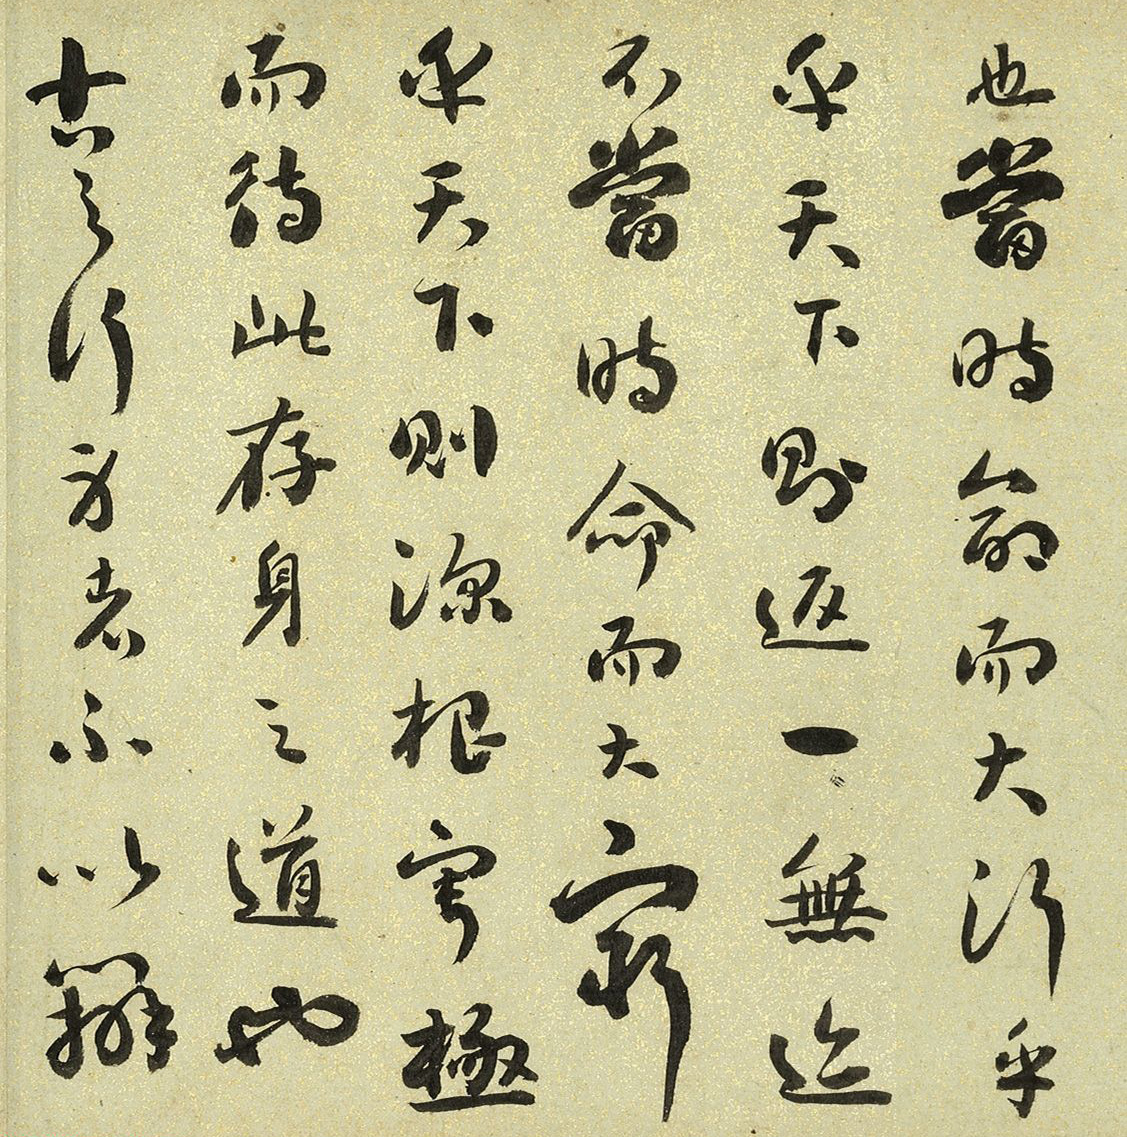 也當時命而大行乎
乎天下則返一無迹
不當時命而大窮
乎天下則深根寧極
而待此存身之道也
古之行身者不以辯